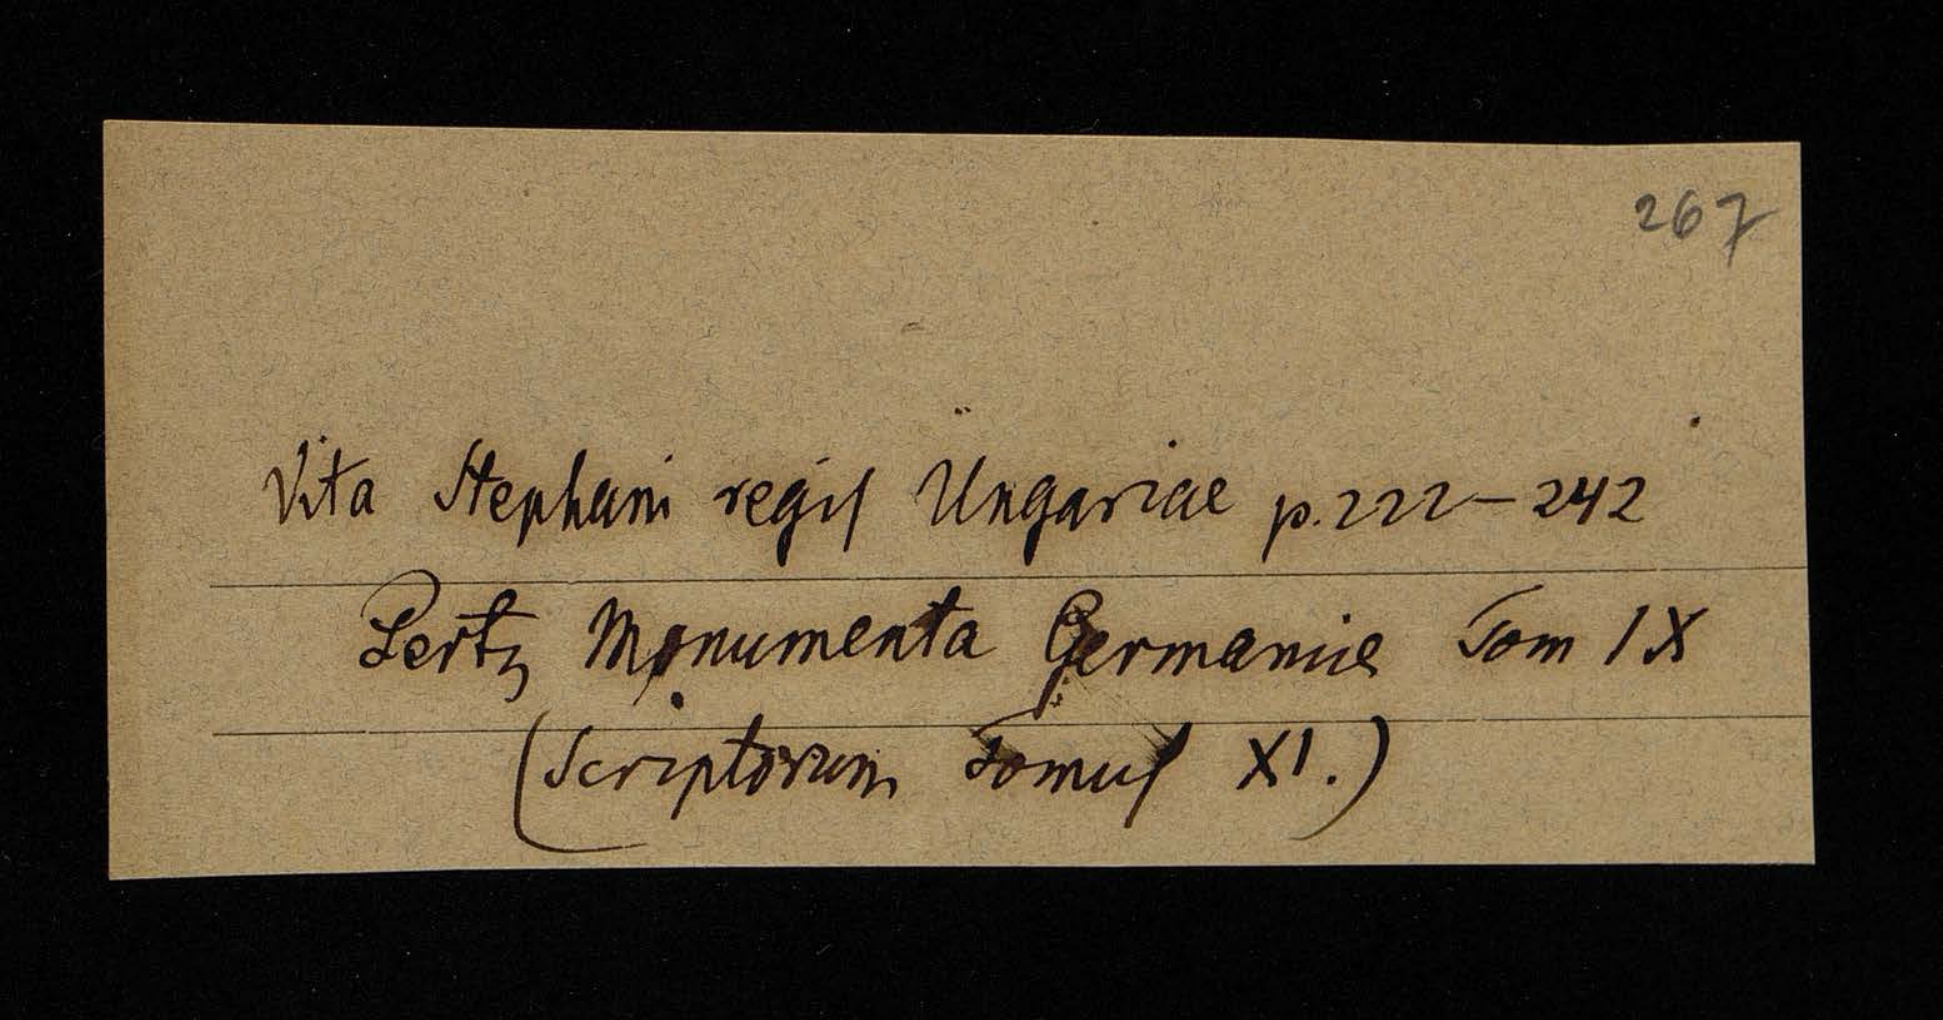 267
Vita Stephani regis Ungariae p. 222–242
Pertz Monumenta Germaniae Tom IX
(Scriptorum Tomus XI.)